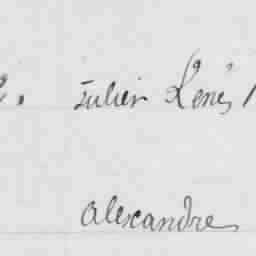 Julien Renés
alexandre